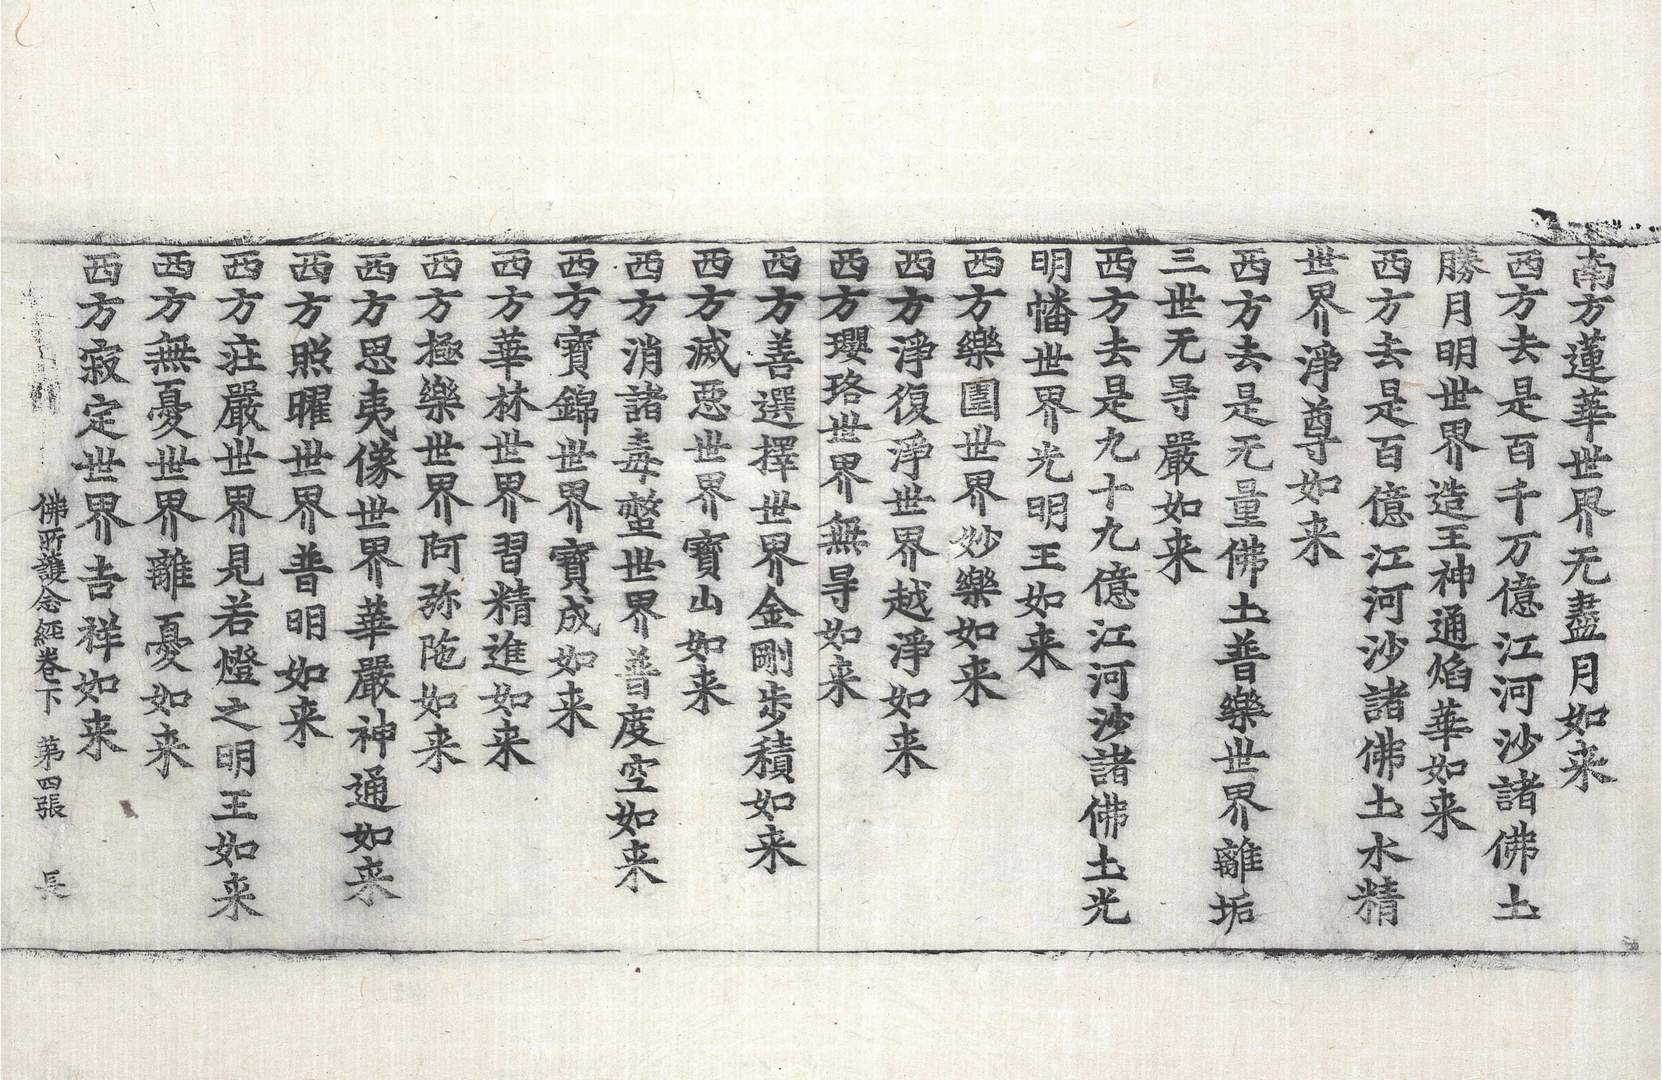 南方蓮華世界无盡月如来
西方去是百千万億江河沙諸佛土
勝月明世界造王神通焰華如来
西方去是百億江河沙諸佛土水精
世界淨尊如来
西方去是无量佛土普樂世界離垢
三世无㝵嚴如来
西方去是九十九億江河沙諸佛土光
明幡世界光明王如来
西方樂園世界妙樂如来
西方淨復淨世界越淨如来
西方瓔珞世界無㝵如来
西方善選擇世界金剛步積如来
西方滅惡世界寶山如来
西方消諸毒螫世界普度空如来
西方寶錦世界寶成如来
西方華林世界習精進如来
西方極樂世界阿弥陁如来
西方思夷像世界華嚴神通如来
西方照曜世界普明如来
西方莊嚴世界見若燈之明王如来
西方無憂世界離憂如来
西方寂定世界吉祥如来
佛所護念經卷下 第四張 長